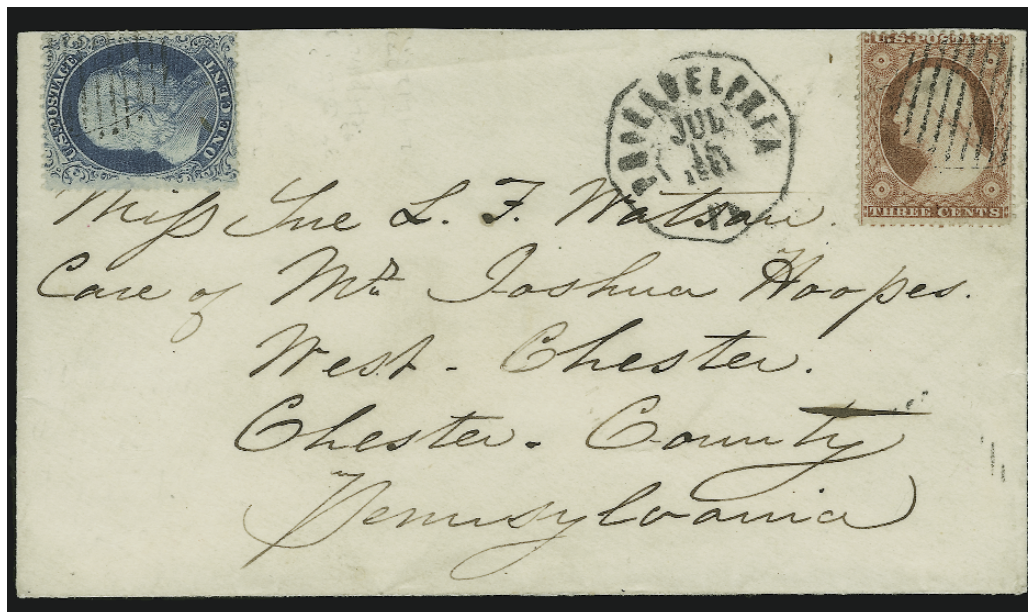 U.S. POSTAGE
ONE CENT
PHILADELPHIA
JUL
15
1861
U.S. POSTAGE
THREE CENTS
Miss Sue L. F. Watson.
Care of Mr. Joshua Hoopes.
West. Chester.
Chester. County
Pennsylvania